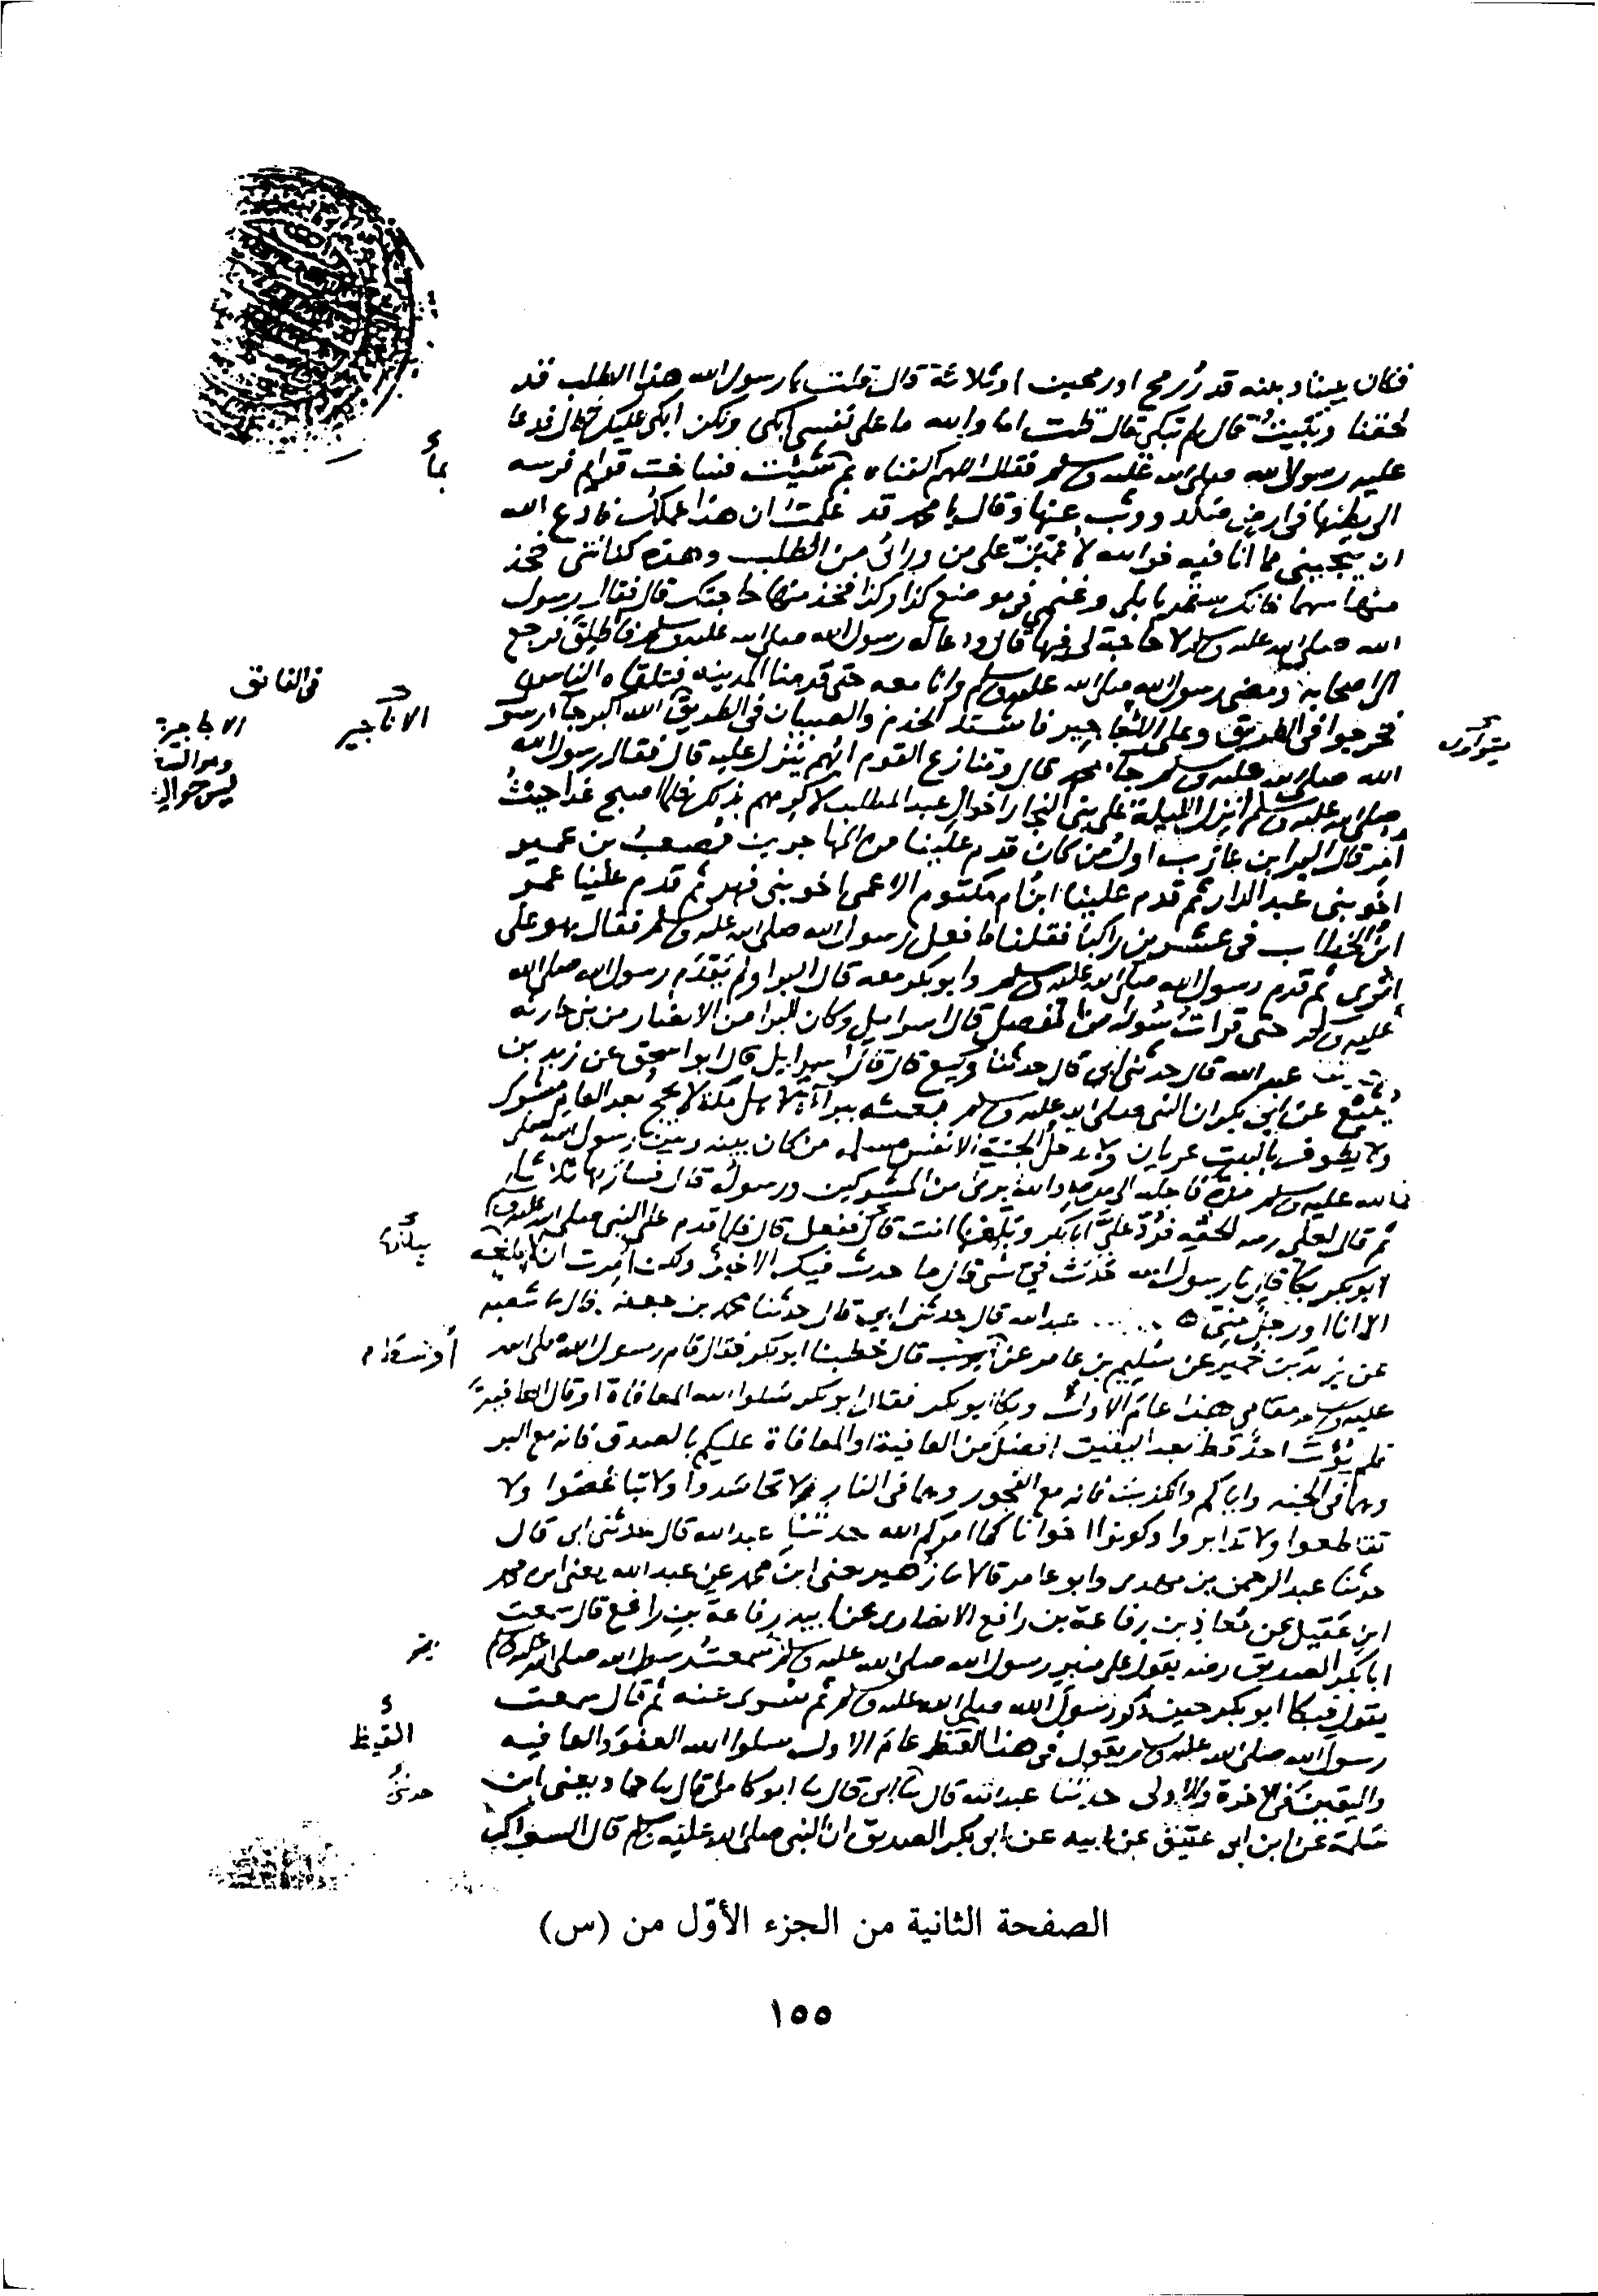 فكان بيننا وبينه قدر رمح او رمحين او ثلاثة قال قلت يا رسول الله هذا الطلب قد
لحقنا وبكيت قال لم تبكي قال قلت اما والله ما على نفسي ابكي ولكن ابكي عليك قال فدعا
عليه رسول الله صلى الله عليه وسلم فقال اللهم اكفناه بم شئت فساخت قوايم فرسه
بمأ
الى بطنها في ارض صلد ووثب عنها وقال يا محمد قد علمت ان هذا عملك فادع الله
ان ينجيني مما انا فيه فوالله لأعمين على من ورائى من الطلب وهذه كنانتي فخذ
منها سهما فانك ستمر بابلي وغنمي في موضع كذا وكذا فخذ منها حاجتك قال فقال رسول
الله صلى الله عليه وسلم لا حاجة لى فيها قال ودعا له رسول الله صلى الله عليه وسلم فاطلق فرجع
الى اصحابه ومضى رسول الله صلى الله عليه وسلم وانا معه حتى قدمنا المدينة فتلقاه الناس
في الفائق
الاناجير
الاجاجيرة
فخرجوا في الطريق وعلى الاجاجير فاشتد الخدم والصبيان في الطريق الله اكبر جاء رسول
الله صلى الله عليه وسلم جاء محمد قال وتنازع القوم ايهم ينزل عليه قال فقال رسول الله
صلى الله عليه وسلم انزل الليلة على بني النجار اخوال عبد المطلب لأكرمهم بذلك فلما اصبح غدا حيث
أمر قال البرا بن عازب اول من كان قدم علينا من المهاجرين مصعب بن عمير
اخو بني عبد الدار ثم قدم علينا ابن ام مكتوم الاعمى اخو بني فهر ثم قدم علينا عمر
ابن الخطاب في عشرين راكبا فقلنا ما فعل رسول الله صلى الله عليه وسلم فقال هو على
اثري ثم قدم رسول الله صلى الله عليه وسلم وابو بكر معه قال البرا ولم يقدم رسول الله صلى الله
عليه وسلم حتى قرات سورا من المفصل قال اسرايل وكان البرا من الانصار من بني حارثه
عبد الله قال حدثني ابي قال حدثنا وكيع قال قال اسرايل قال ابو اسحق عن زيد بن
يثيع عن ابي بكر ان النبي صلى الله عليه وسلم بعثه ببرآءة لاهل مكة لا يحج بعد العام مشرك
ولا يطوف بالبيت عريان ولا يدخل الجنة الا نفس مسلمه من كان بينه وبين رسول الله صلى
الله عليه وسلم مدة فاجله الى مدته والله برئ من المشركين ورسوله قال فسار بها ثلاثا
ثم قال لعلي رضه الحقه فرد علي ابا بكر وبلغها انت قال ففعل قال فلما قدم على النبي صلى الله عليه وسلم
ابو بكر بكا قال يا رسول الله حدث في شي قال ما حدث فيك الا خير ولكن امرت ان لا يبلغه
الا انا او رجل مني عبد الله قال حدثني ابي قال حدثنا محمد بن جعفر قال نا شعبه
عن يزيد بن خمير عن سليم بن عامر عن اوسط قال خطبنا ابو بكر فقال قام رسول الله صلى الله
أوسط
عليه وسلم مقامي هذا عام الاول وبكا ابو بكر فقال ابو بكر سلوا الله المعافاة او قال العافية
فلم يؤت احد قط بعد اليقين افضل من العافية او المعافاة عليكم بالصدق فانه مع البر
وهما في الجنه واياكم والكذب فانه مع الفجور وهما في النار ولا تحاسدوا ولا تباغضوا ولا
تقاطعوا ولا تدابروا وكونوا اخوانا كما امركم الله حدثنا عبد الله قال حدثني ابي قال
حدثنا عبد الرحمن بن مهدى وابو عامر قالا نا زهير يعني ابن محمد عن عبد الله يعني ابن محمد
ابن عقيل عن معاذ بن رفاعة بن رافع الانصارى عن ابيه رفاعة بن رافع قال سمعت
ابا بكر الصديق رضه يقول على منبر رسول الله صلى الله عليه وسلم سمعت رسول الله صلى الله عليه وسلم
يقول فبكا ابو بكر حين ذكر رسول الله صلى الله عليه وسلم ثم سرى عنه ثم قال سمعت
القيظ
رسول الله صلى الله عليه وسلم يقول في هذا القيظ عام الاول سلوا الله العفو والعافيه
واليقين في الاخرة والاولى حدثنا عبد الله قال نا ابي قال نا ابو كامل قال نا حماد يعني ابن
سلمة عن ابن ابي عتيق عن ابيه عن ابي بكر الصديق ان النبي صلى الله عليه وسلم قال السواك
الصفحة الثانية من الجزء الأوّل من (س)
١٥٥